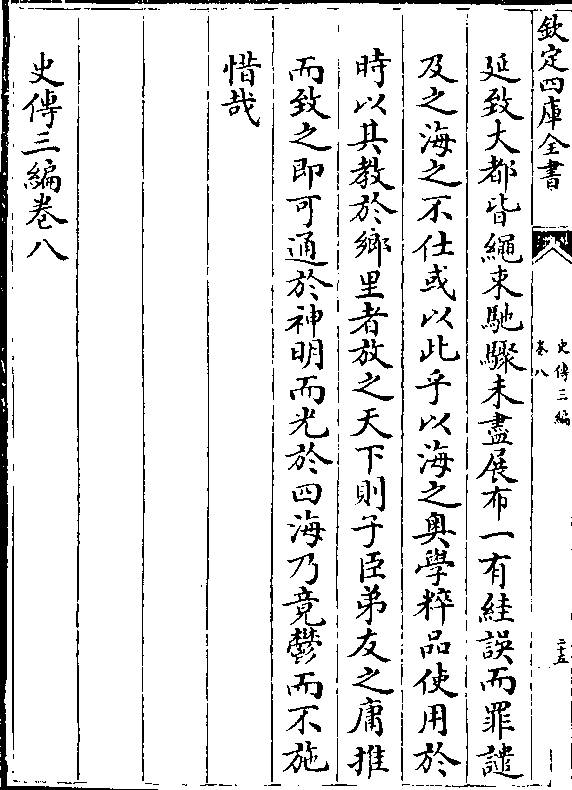 欽定四庫全書
史傳三編
卷八
二十五
延致大都皆繩束馳驟未盡展布一有絓誤而罪譴
及之海之不仕或以此乎以海之奧學粹品使用於
時以其教於鄉里者放之天下則子臣弟友之庸推
而致之即可通於神明而光於四海乃竟鬱而不施
惜哉
史傳三編卷八